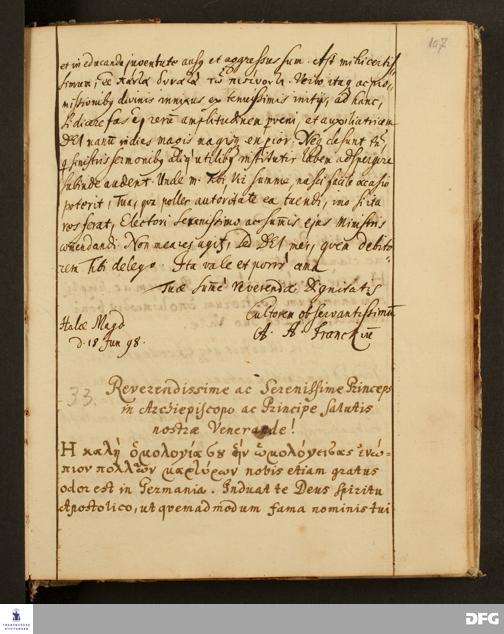 107
et in educanda juventute ausq et aggressus sum. Ast mihi certis-
simum, ὅτι πάντα δυνατὰ τῷ πιστεύοντι. Veritate itaq ac pro-
missionibq divinis innixus ex tenuissimis initijs, ad hanc,
si dicere fas e, rerū amplitudinem pveni, et auxiliatricem
DEI manū indies magis magisq experior. Neq desunt tn,
q sinistris sermonibq aliq utilibq institutis labem adspergere
subinde audent. Unde m. Tibi Vir summe, nasci facile occasio
poterit, Tua, qua polles autoritate ea tuendi, imo si ita
res ferat, Electori Serenissimo ac sumis ejus Ministris
comendandi. Non mea res agit, sed DEI mei, quem debito-
rem Tibi delego. Ita vale et porrò ama
Tuæ sumè reverendæ Dignitatis
Cultorem observantissimū
A. H. Franckiū
Halæ Magd
d. 18 Jun 98.
33. Reverendissime ac Serenissime Princeps
in Archiepiscopo ac Principe Salutis
nostræ Venerande!
Η καλὴ ὁμολογία σου ἣν ὡμολόγησας ἐνώ-
πιον πολλῶν μαρτύρων nobis etiam gratus
odor est in Germania. Induat te Deus Spiritu
Apostolico, ut quemadmodum fama nominis tui
FRANCKESCHE STIFTUNGEN
DFG